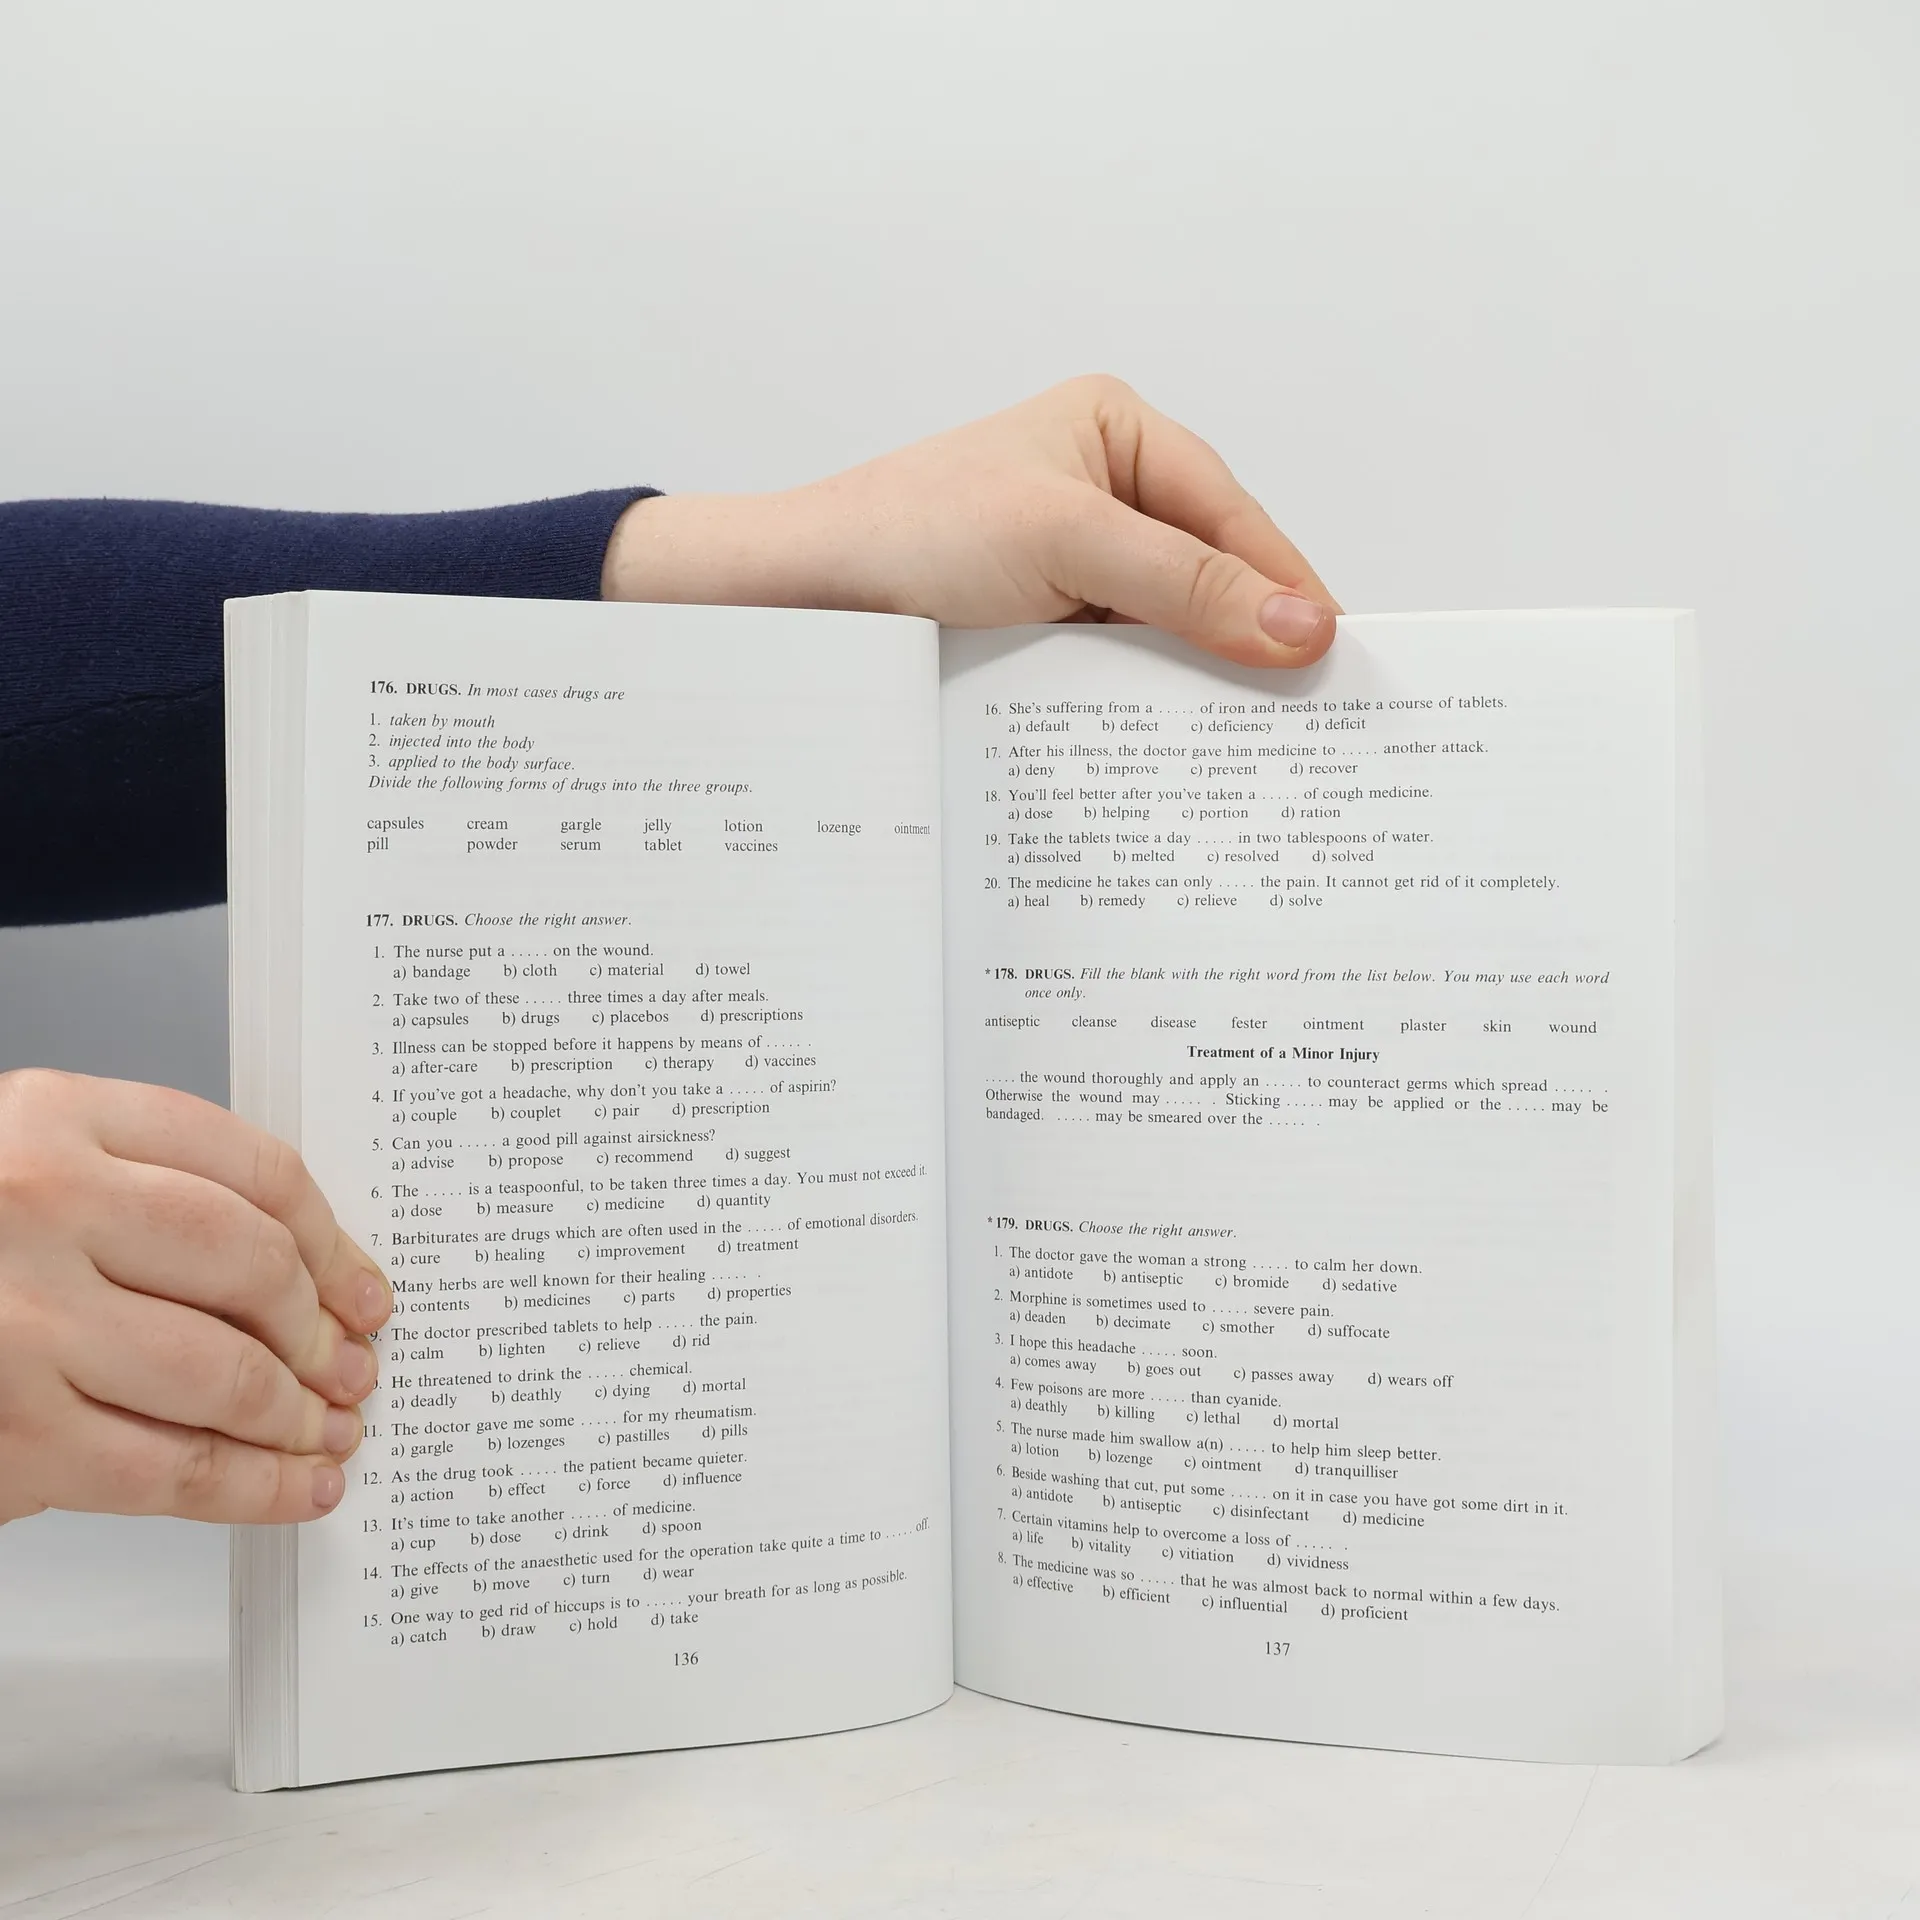 176. DRUGS. In most cases drugs are
1. taken by mouth
2. injected into the body
3. applied to the body surface.
Divide the following forms of drugs into the three groups.
capsules cream gargle jelly lotion lozenge ointment
pill powder serum tablet vaccines
177. DRUGS. Choose the right answer.
1. The nurse put a ..... on the wound.
a) bandage b) cloth c) material d) towel
2. Take two of these ..... three times a day after meals.
a) capsules b) drugs c) placebos d) prescriptions
3. Illness can be stopped before it happens by means of ..... .
a) after-care b) prescription c) therapy d) vaccines
4. If you've got a headache, why don't you take a ..... of aspirin?
a) couple b) couplet c) pair d) prescription
5. Can you ..... a good pill against airsickness?
a) advise b) propose c) recommend d) suggest
6. The ..... is a teaspoonful, to be taken three times a day. You must not exceed it.
a) dose b) measure c) medicine d) quantity
7. Barbiturates are drugs which are often used in the ..... of emotional disorders.
a) cure b) healing c) improvement d) treatment
Many herbs are well known for their healing ..... .
a) contents b) medicines c) parts d) properties
9. The doctor prescribed tablets to help ..... the pain.
a) calm b) lighten c) relieve d) rid
. He threatened to drink the ..... chemical.
a) deadly b) deathly c) dying d) mortal
11. The doctor gave me some ..... for my rheumatism.
a) gargle b) lozenges c) pastilles d) pills
12. As the drug took ..... the patient became quieter.
a) action b) effect c) force d) influence
13. It's time to take another ..... of medicine.
a) cup b) dose c) drink d) spoon
14. The effects of the anaesthetic used for the operation take quite a time to ..... off.
a) give b) move c) turn d) wear
15. One way to ged rid of hiccups is to ..... your breath for as long as possible.
a) catch b) draw c) hold d) take
136
16. She's suffering from a ..... of iron and needs to take a course of tablets.
a) default b) defect c) deficiency d) deficit
17. After his illness, the doctor gave him medicine to ..... another attack.
a) deny b) improve c) prevent d) recover
18. You'll feel better after you've taken a ..... of cough medicine.
a) dose b) helping c) portion d) ration
19. Take the tablets twice a day ..... in two tablespoons of water.
a) dissolved b) melted c) resolved d) solved
20. The medicine he takes can only ..... the pain. It cannot get rid of it completely.
a) heal b) remedy c) relieve d) solve
*178. DRUGS. Fill the blank with the right word from the list below. You may use each word
once only.
antiseptic cleanse disease fester ointment plaster skin wound
Treatment of a Minor Injury
..... the wound thoroughly and apply an ..... to counteract germs which spread ..... .
Otherwise the wound may ..... . Sticking ..... may be applied or the ..... may be
bandaged. ..... may be smeared over the ..... .
*179. DRUGS. Choose the right answer.
1. The doctor gave the woman a strong ..... to calm her down.
a) antidote b) antiseptic c) bromide d) sedative
2. Morphine is sometimes used to ..... severe pain.
a) deaden b) decimate c) smother d) suffocate
3. I hope this headache ..... soon.
a) comes away b) goes out c) passes away d) wears off
4. Few poisons are more ..... than cyanide.
a) deathly b) killing c) lethal d) mortal
5. The nurse made him swallow a(n) ..... to help him sleep better.
a) lotion b) lozenge c) ointment d) tranquilliser
6. Beside washing that cut, put some ..... on it in case you have got some dirt in it.
a) antidote b) antiseptic c) disinfectant d) medicine
7. Certain vitamins help to overcome a loss of ..... .
a) life b) vitality c) vitiation d) vividness
8. The medicine was so ..... that he was almost back to normal within a few days.
a) effective b) efficient c) influential d) proficient
137